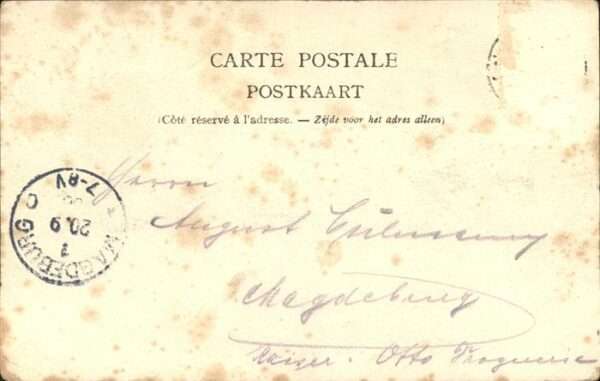 CARTE POSTALE
POSTKAART
(Côté réservé à l'adresse. — Zijde voor het adres alleen)
MAGDEBURG
1
20.9
7-8V
Herrn
August
Magdeburg
Kaiser - Otto